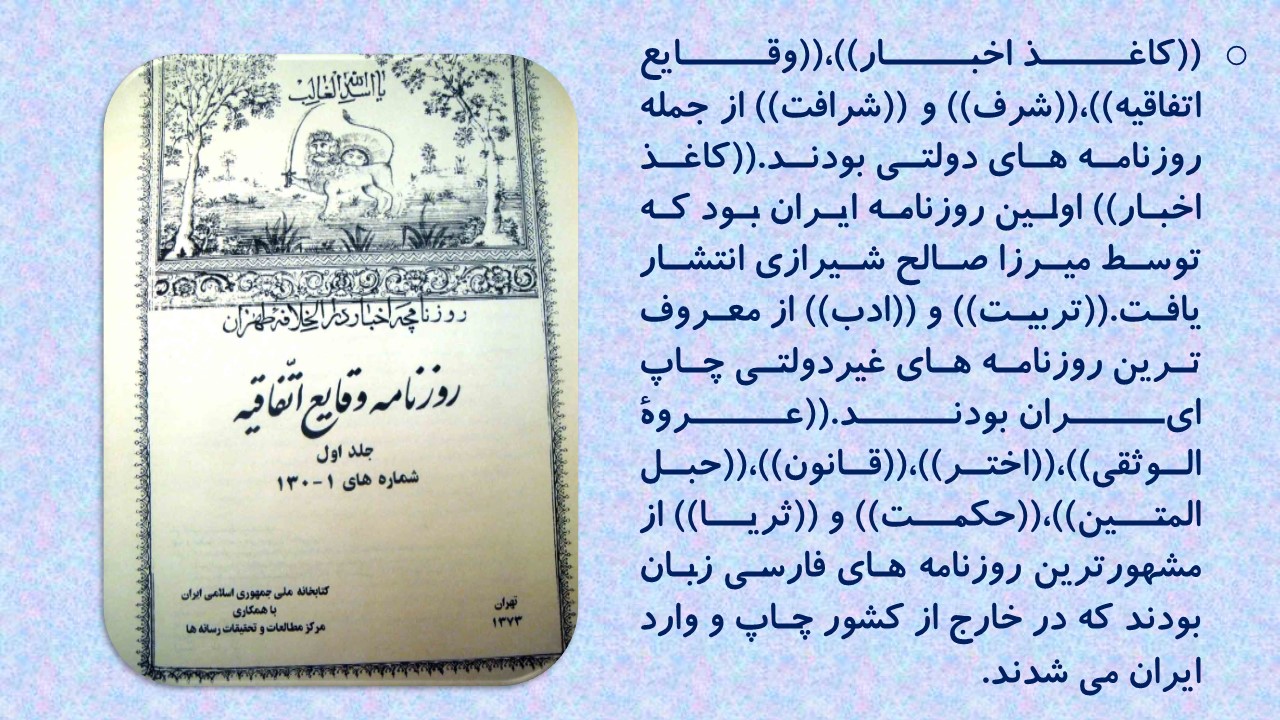 ○ ((کاغذ اخبار))،((وقایع
اتفاقیه))،((شرف)) و ((شرافت)) از جمله
روزنامه های دولتی بودند.((کاغذ
اخبار)) اولین روزنامه ایران بود که
توسط میرزا صالح شیرازی انتشار
یافت.((تربیت)) و ((ادب)) از معروف
ترین روزنامه های غیردولتی چاپ
ایران بودند.((عروهٔ
الوثقی))،((اختر))،((قانون))،((حبل
المتین))،((حکمت)) و ((ثریا)) از
مشهورترین روزنامه های فارسی زبان
بودند که در خارج از کشور چاپ و وارد
ایران می شدند.
یا اسدالله الغالب
روزنامچه اخبار دارالخلافه طهران
روزنامه وقایع اتّفاقیه
جلد اول
شماره های ۱-۱۳۰
کتابخانه ملی جمهوری اسلامی ایران
با همکاری
مرکز مطالعات و تحقیقات رسانه ها
تهران
۱۳۷۳